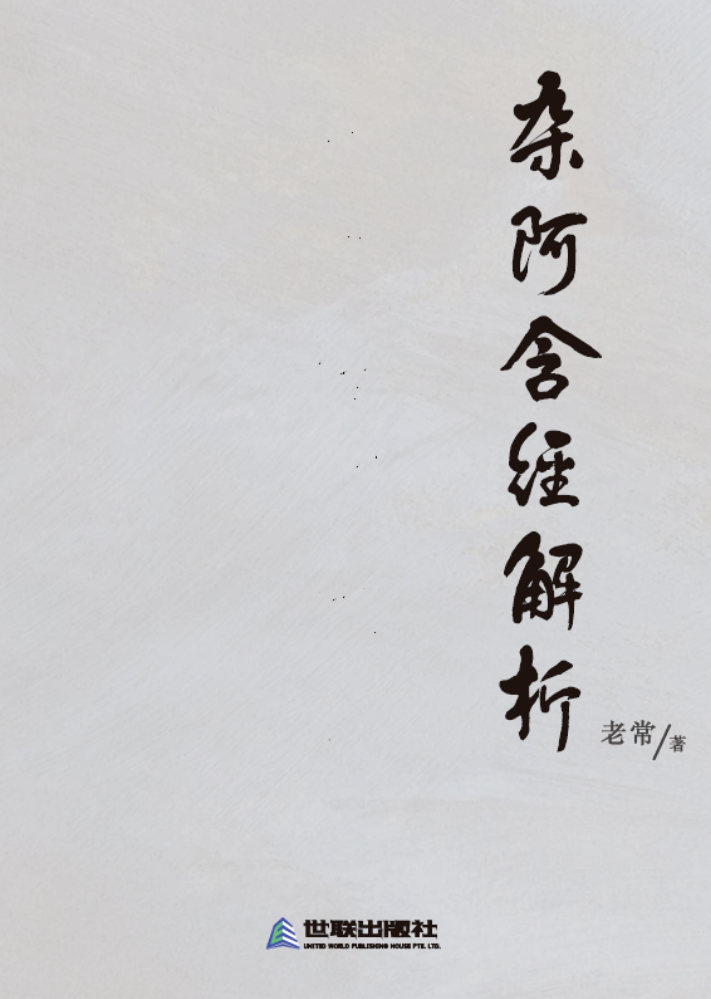 杂阿含经解析
老常/著
世联出版社
UNITED WORLD PUBLISHING HOUSE PTE. LTD.